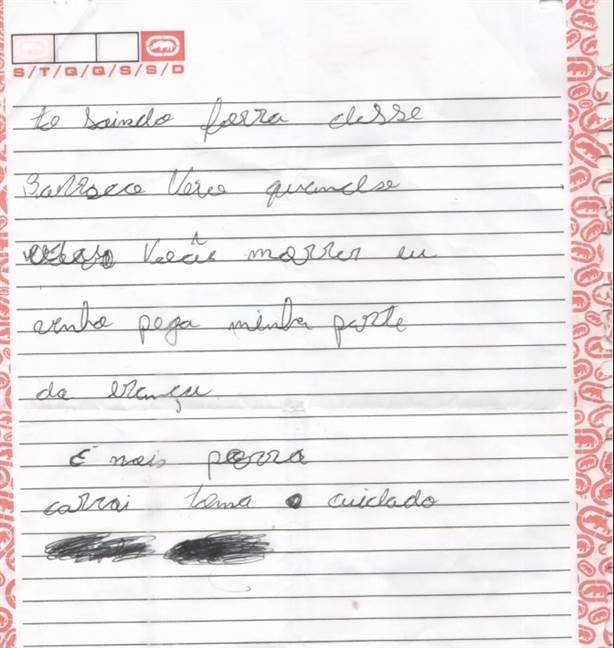 S/T/Q/Q/S/S/D
to saindo forra desse
Barroco Vere quandse
Vocês morrer eu
venho pega minha parte
da erança
E mais porra
carrai toma cuidado